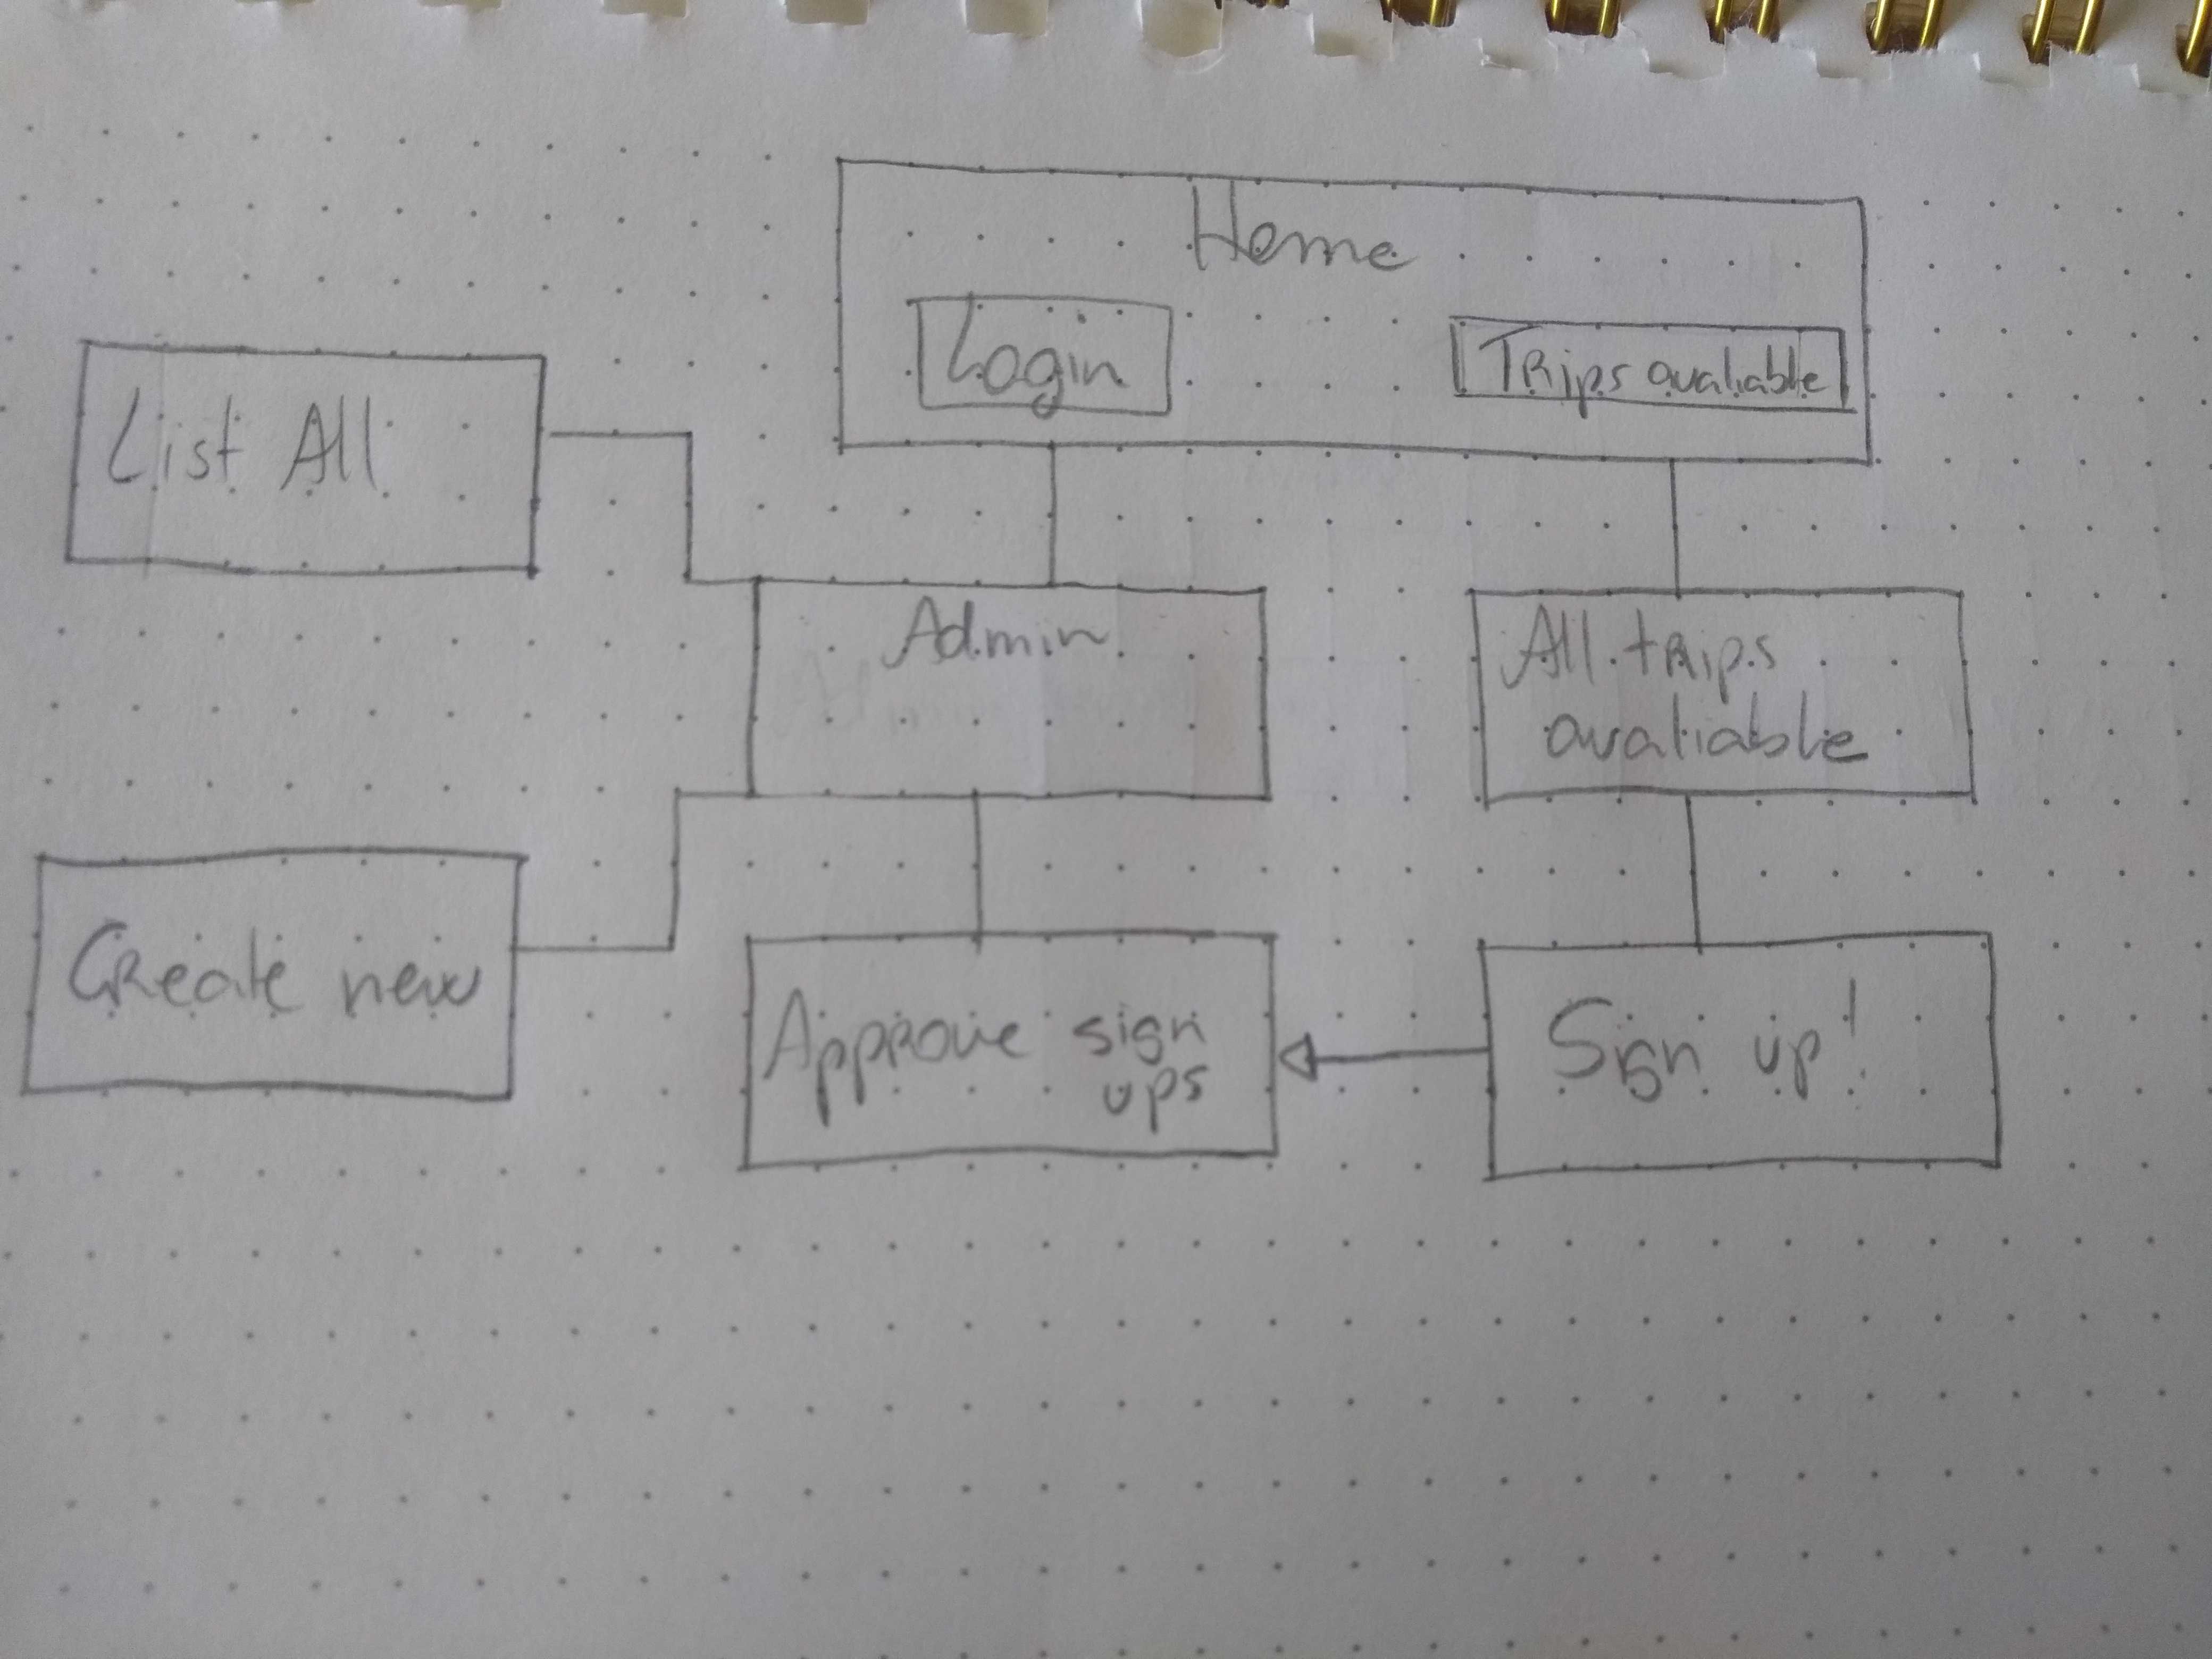 Home
Login
Trips avaliable
List All
Admin
All trips
avaliable
Create new
Approve sign
ups
Sign up!